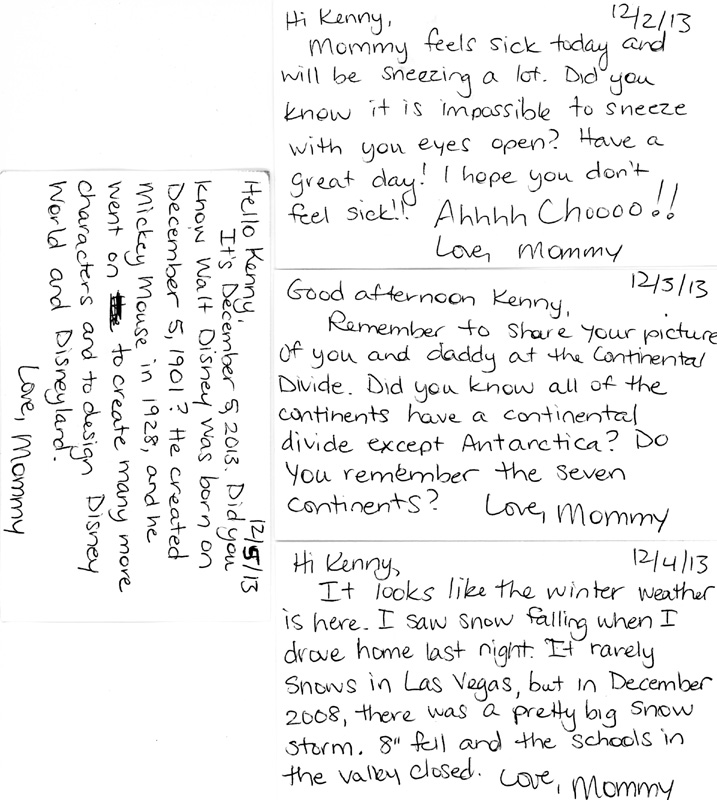 12/2/13
Hi Kenny,
Mommy feels sick today and
will be sneezing a lot. Did you
know it is impossible to sneeze
with you eyes open? Have a
great day! I hope you don't
feel sick!! Ahhhh Choooo!!
Love, Mommy
12/3/13
Good afternoon Kenny,
Remember to share your picture
of you and daddy at the Continental
Divide. Did you know all of the
continents have a continental
divide except Antarctica? Do
you remember the seven
continents? Love, Mommy
12/4/13
Hi Kenny,
It looks like the winter weather
is here. I saw snow falling when I
drove home last night. It rarely
snows in Las Vegas, but in December
2008, there was a pretty big snow
storm. 8" fell and the schools in
the valley closed. Love, Mommy
12/5/13
Hello Kenny,
It's December 5, 2013. Did you
know Walt Disney was born on
December 5, 1901? He created
Mickey Mouse in 1928, and he
went on to create many more
characters and to design Disney
World and Disneyland.
Love, Mommy